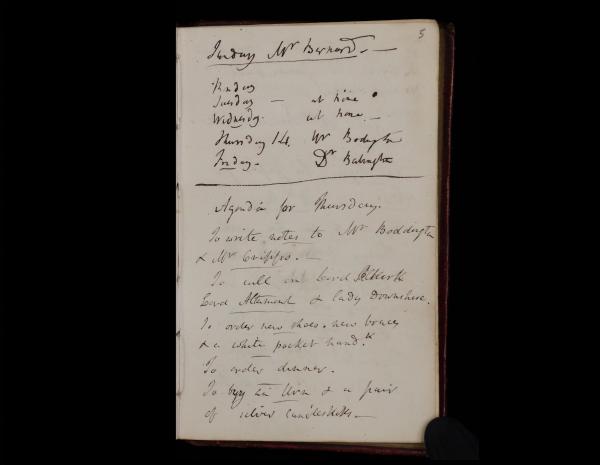 5
Sunday Mr Bernard. —
Monday
Tuesday — at home
Wednesday. at home. —
Thursday 14. Mr Bodington
Friday. Dr Babington
Agenda for Thursday.
To write notes to Mr Boddington
& Mr Cripps. —
To call on Lord
Lord Altamont & Lady Downshire.
To order new shoes. new braces
& a white pocket hand.k
To order dinner.
To buy an Urn & a pair
of silver candlesticks. —